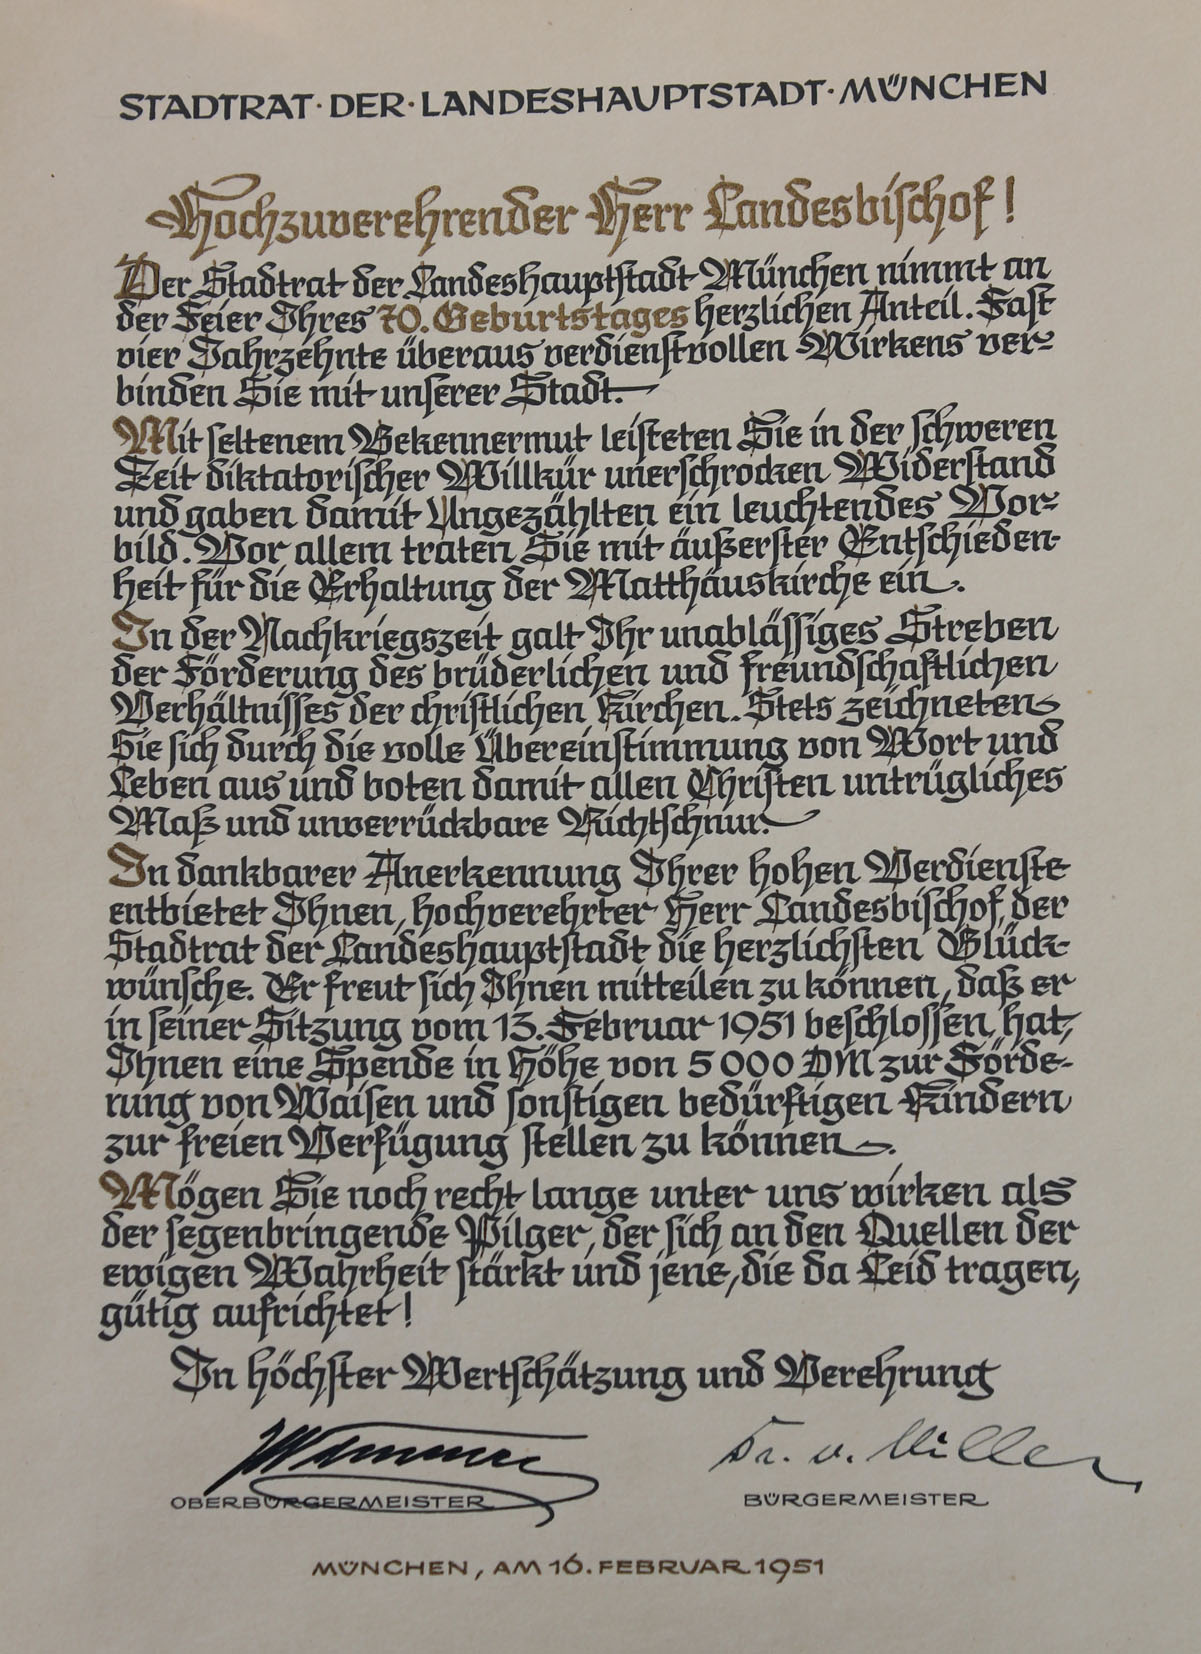 STADTRAT · DER · LANDESHAUPTSTADT · MÜNCHEN
Hochzuverehrender Herr Landesbischof!
Der Stadtrat der Landeshauptstadt München nimmt an
der Feier Ihres 70. Geburtstages herzlichen Anteil. Fast
vier Jahrzehnte überaus verdienstvollen Wirkens ver-
binden Sie mit unserer Stadt.
Mit seltenem Bekennermut leisteten Sie in der schweren
Zeit diktatorischer Willkür unerschrocken Widerstand
und gaben damit Ungezählten ein leuchtendes Vor-
bild. Vor allem traten Sie mit äußerster Entschieden-
heit für die Erhaltung der Matthäuskirche ein.
In der Nachkriegszeit galt Ihr unablässiges Streben
der Förderung des brüderlichen und freundschaftlichen
Verhältnisses der christlichen Kirchen. Stets zeichneten
Sie sich durch die volle Übereinstimmung von Wort und
Leben aus und boten damit allen Christen untrügliches
Maß und unverrückbare Richtschnur.
In dankbarer Anerkennung Ihrer hohen Verdienste
entbietet Ihnen, hochverehrter Herr Landesbischof, der
Stadtrat der Landeshauptstadt die herzlichsten Glück-
wünsche. Er freut sich Ihnen mitteilen zu können, daß er
in seiner Sitzung vom 13. Februar 1951 beschlossen hat,
Ihnen eine Spende in Höhe von 5000 DM zur Förde-
rung von Waisen und sonstigen bedürftigen Kindern
zur freien Verfügung stellen zu können.
Mögen Sie noch recht lange unter uns wirken als
der segenbringende Pilger, der sich an den Quellen der
ewigen Wahrheit stärkt und jene, die da Leid tragen,
gütig aufrichtet!
In höchster Wertschätzung und Verehrung
Dr. v. Miller
OBERBÜRGERMEISTER BÜRGERMEISTER
MÜNCHEN, AM 16. FEBRUAR 1951